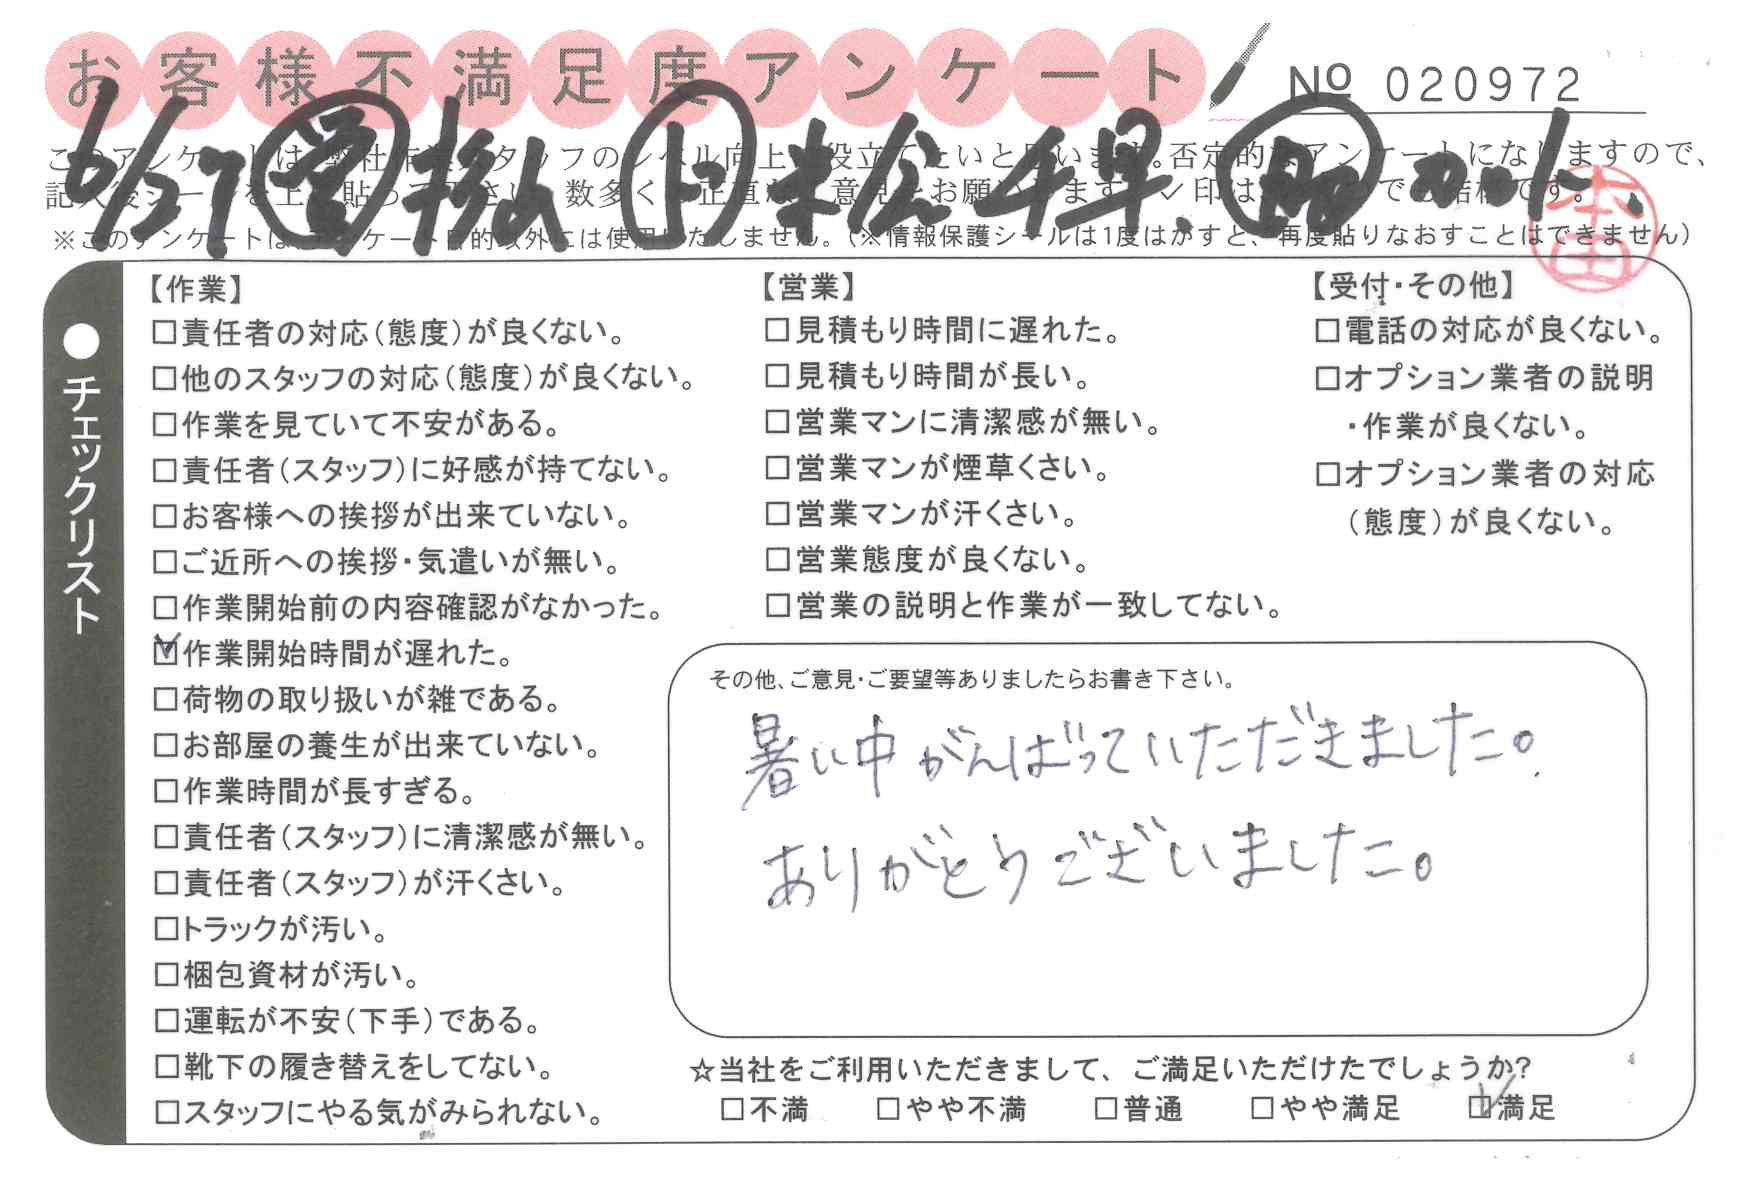 お客様不満足度アンケート
№ 020972
このアンケートは、弊社作業スタッフのレベル向上に役立てたいと思います。否定的なアンケートになりますので、
記入後シールを上に貼って下さい。数多くの正直なご意見をお願いします。✓印はいくつでも結構です。
※このアンケートは、アンケート目的以外には使用いたしません。(※情報保護シールは1度はがすと、再度貼りなおすことはできません)
6/27 営 杉山 ド 末松 千早、 カット、
● チェックリスト
【作業】
□責任者の対応(態度)が良くない。
□他のスタッフの対応(態度)が良くない。
□作業を見ていて不安がある。
□責任者(スタッフ)に好感が持てない。
□お客様への挨拶が出来ていない。
□ご近所への挨拶・気遣いが無い。
□作業開始前の内容確認がなかった。
☑作業開始時間が遅れた。
□荷物の取り扱いが雑である。
□お部屋の養生が出来ていない。
□作業時間が長すぎる。
□責任者(スタッフ)に清潔感が無い。
□責任者(スタッフ)が汗くさい。
□トラックが汚い。
□梱包資材が汚い。
□運転が不安(下手)である。
□靴下の履き替えをしてない。
□スタッフにやる気がみられない。
【営業】
□見積もり時間に遅れた。
□見積もり時間が長い。
□営業マンに清潔感が無い。
□営業マンが煙草くさい。
□営業マンが汗くさい。
□営業態度が良くない。
□営業の説明と作業が一致してない。
【受付・その他】
□電話の対応が良くない。
□オプション業者の説明
・作業が良くない。
□オプション業者の対応
(態度)が良くない。
その他、ご意見・ご要望等ありましたらお書き下さい。
暑い中がんばっていただきました。
ありがとうございました。
☆当社をご利用いただきまして、ご満足いただけたでしょうか?
□不満 □やや不満 □普通 □やや満足 ☑満足